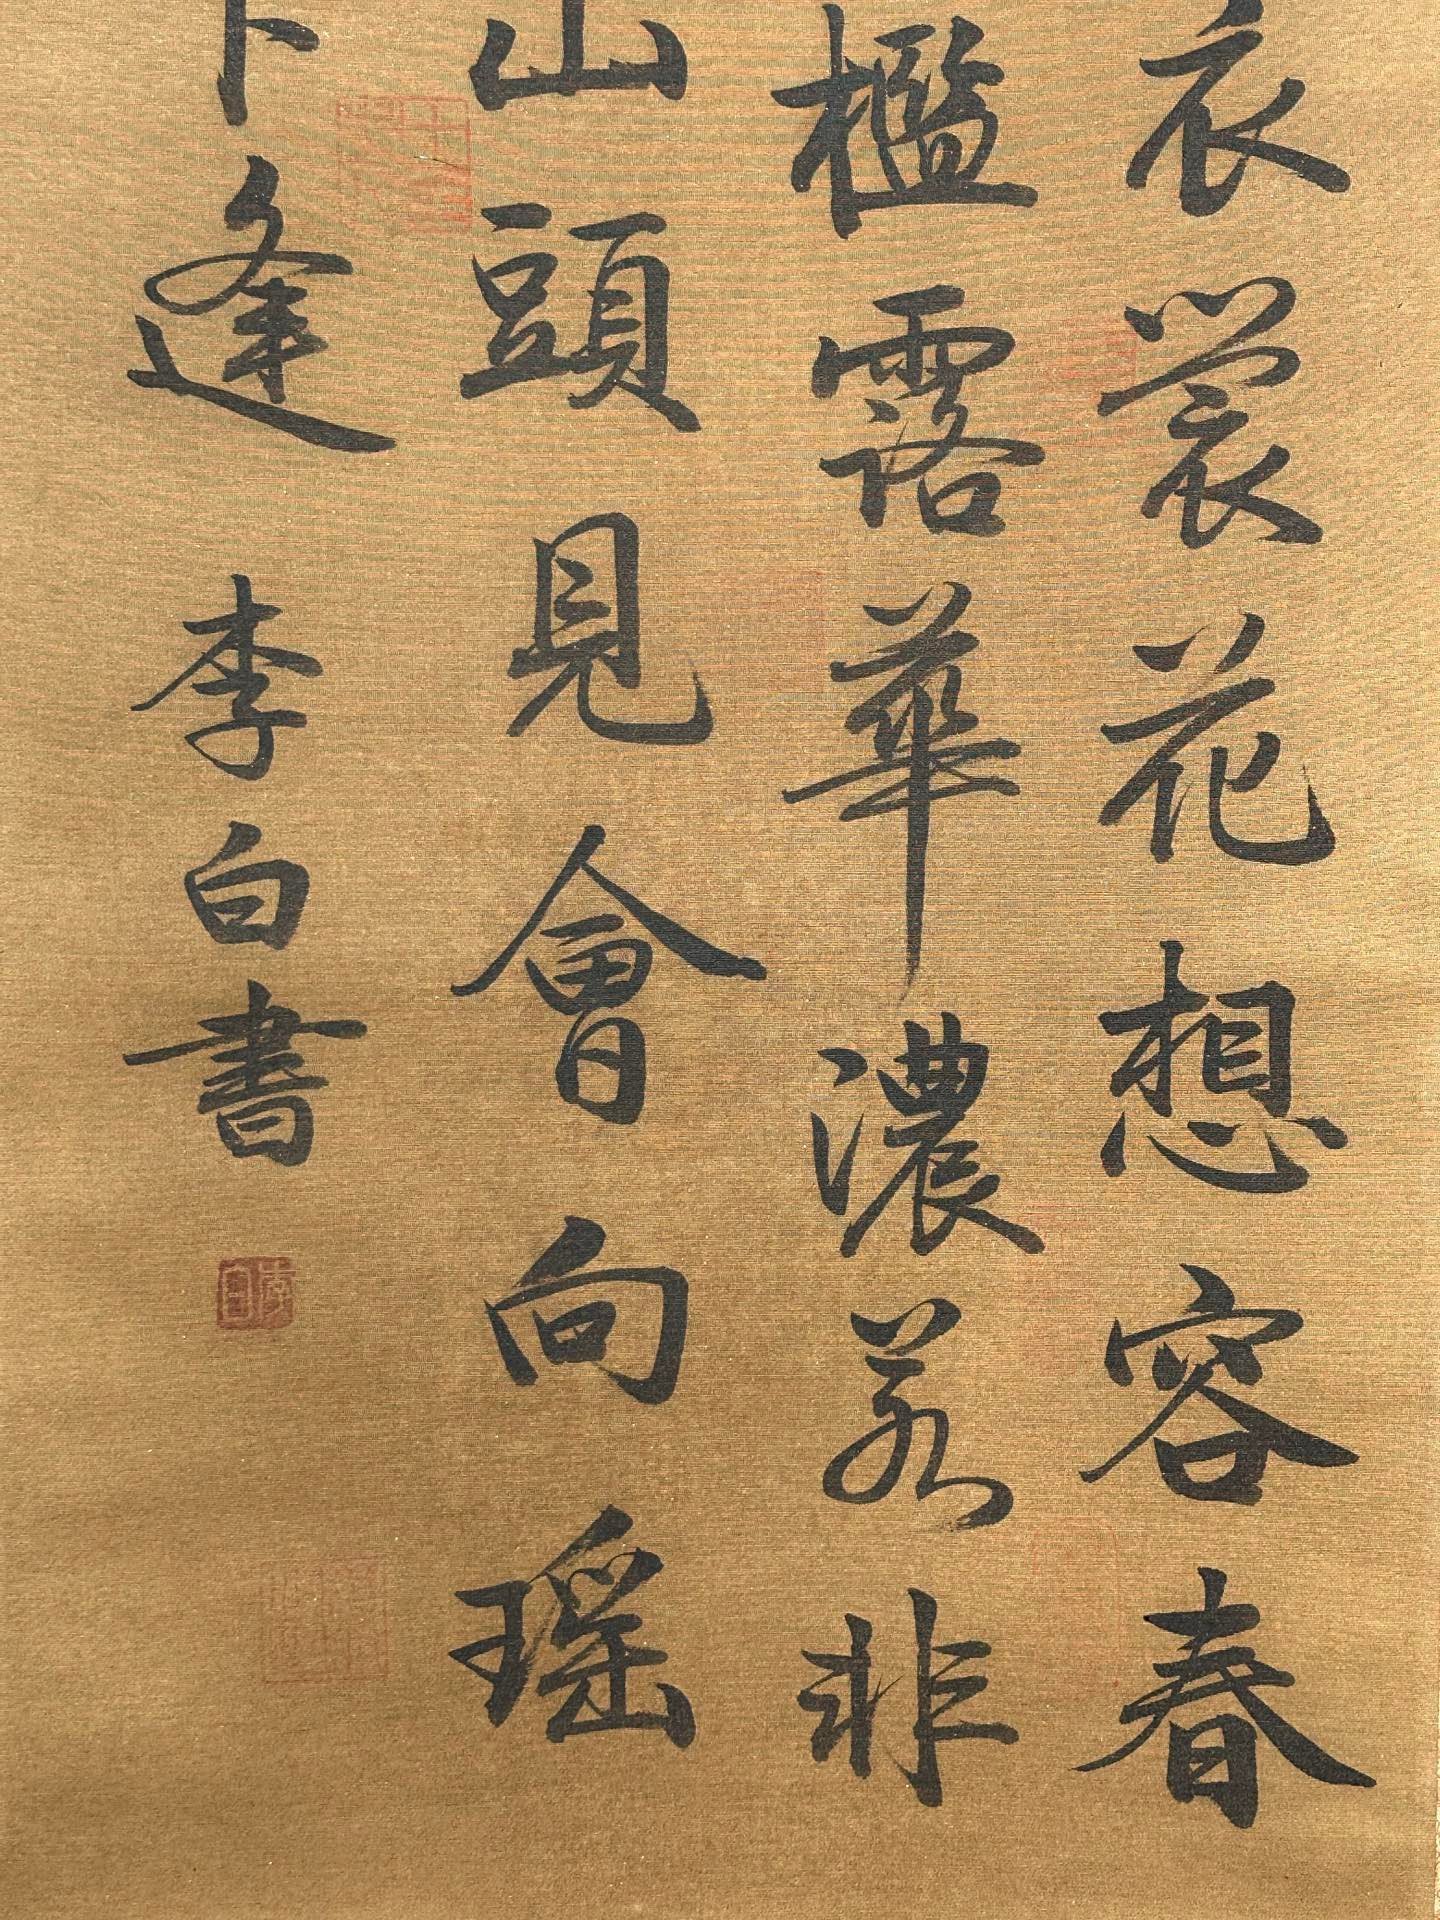 衣裳花想容春
檻露華濃若非
山頭見會向瑤
下逢
李白書
李白